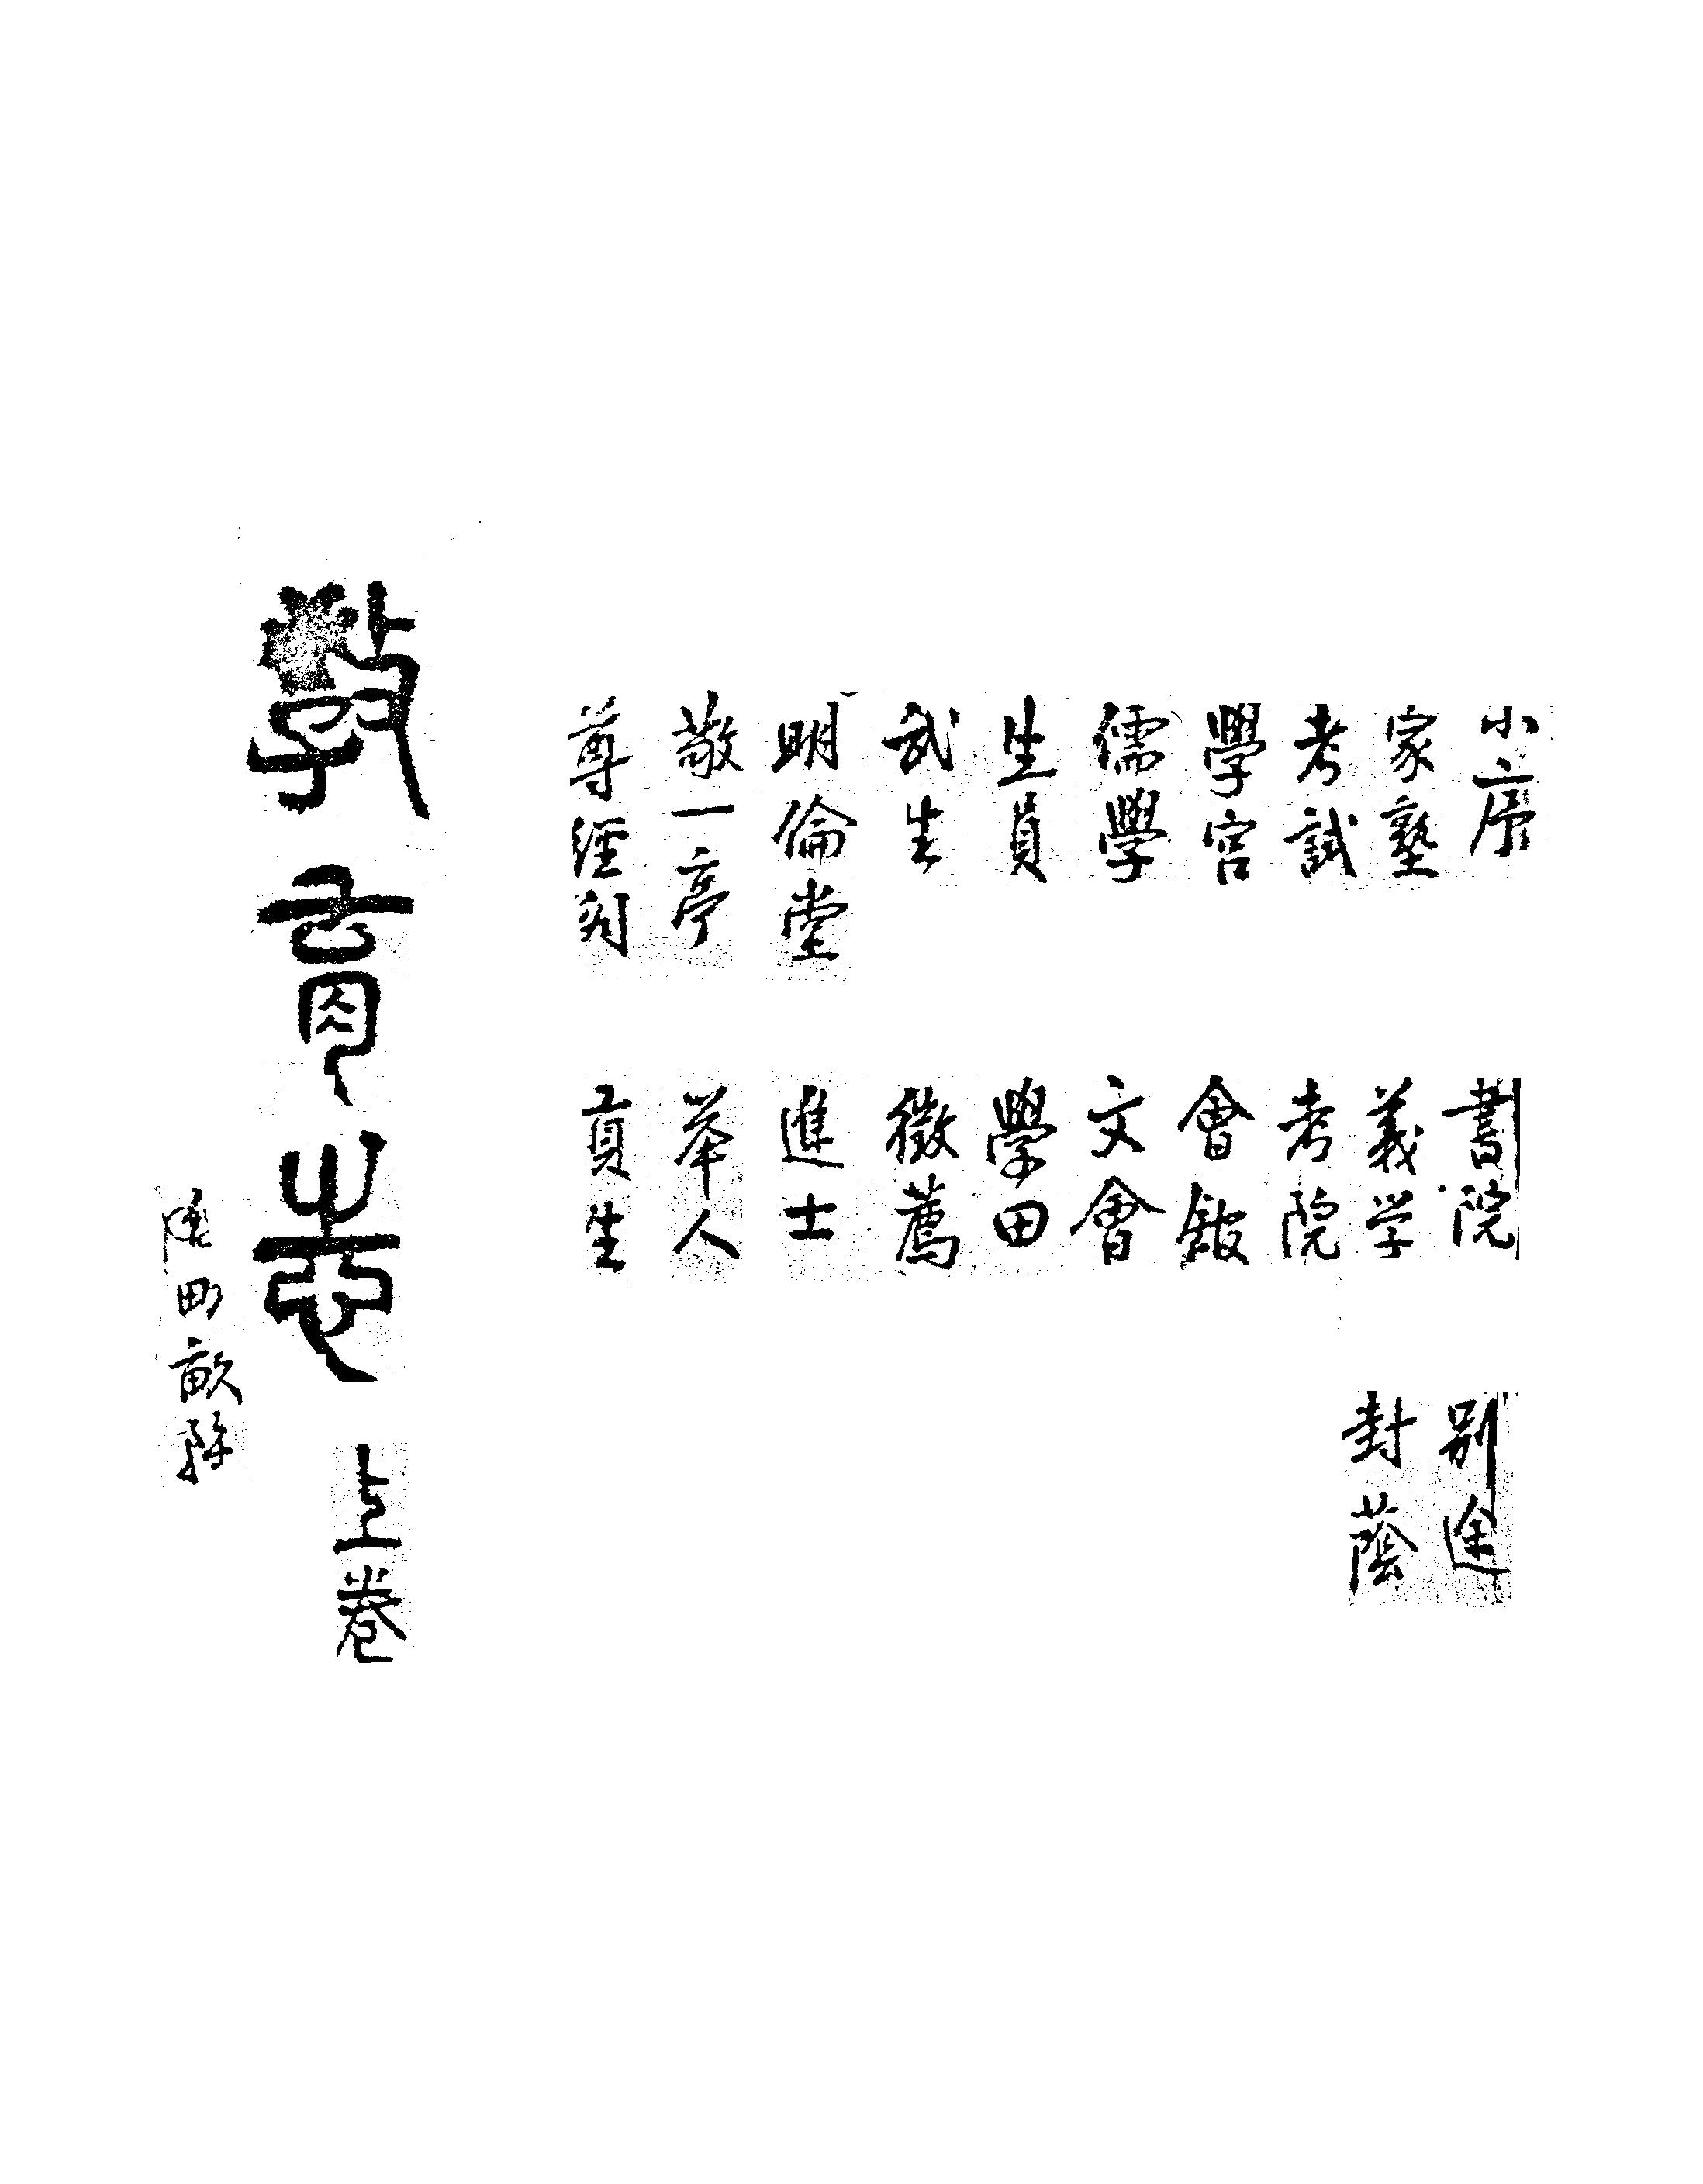 小序
家塾
考試
學宮
儒學
生員
武生
明倫堂
敬一亭
尊經閣
書院
義学
考院
會館
文會
學田
徵薦
進士
举人
貢生
別途
封蔭
教育志
上卷